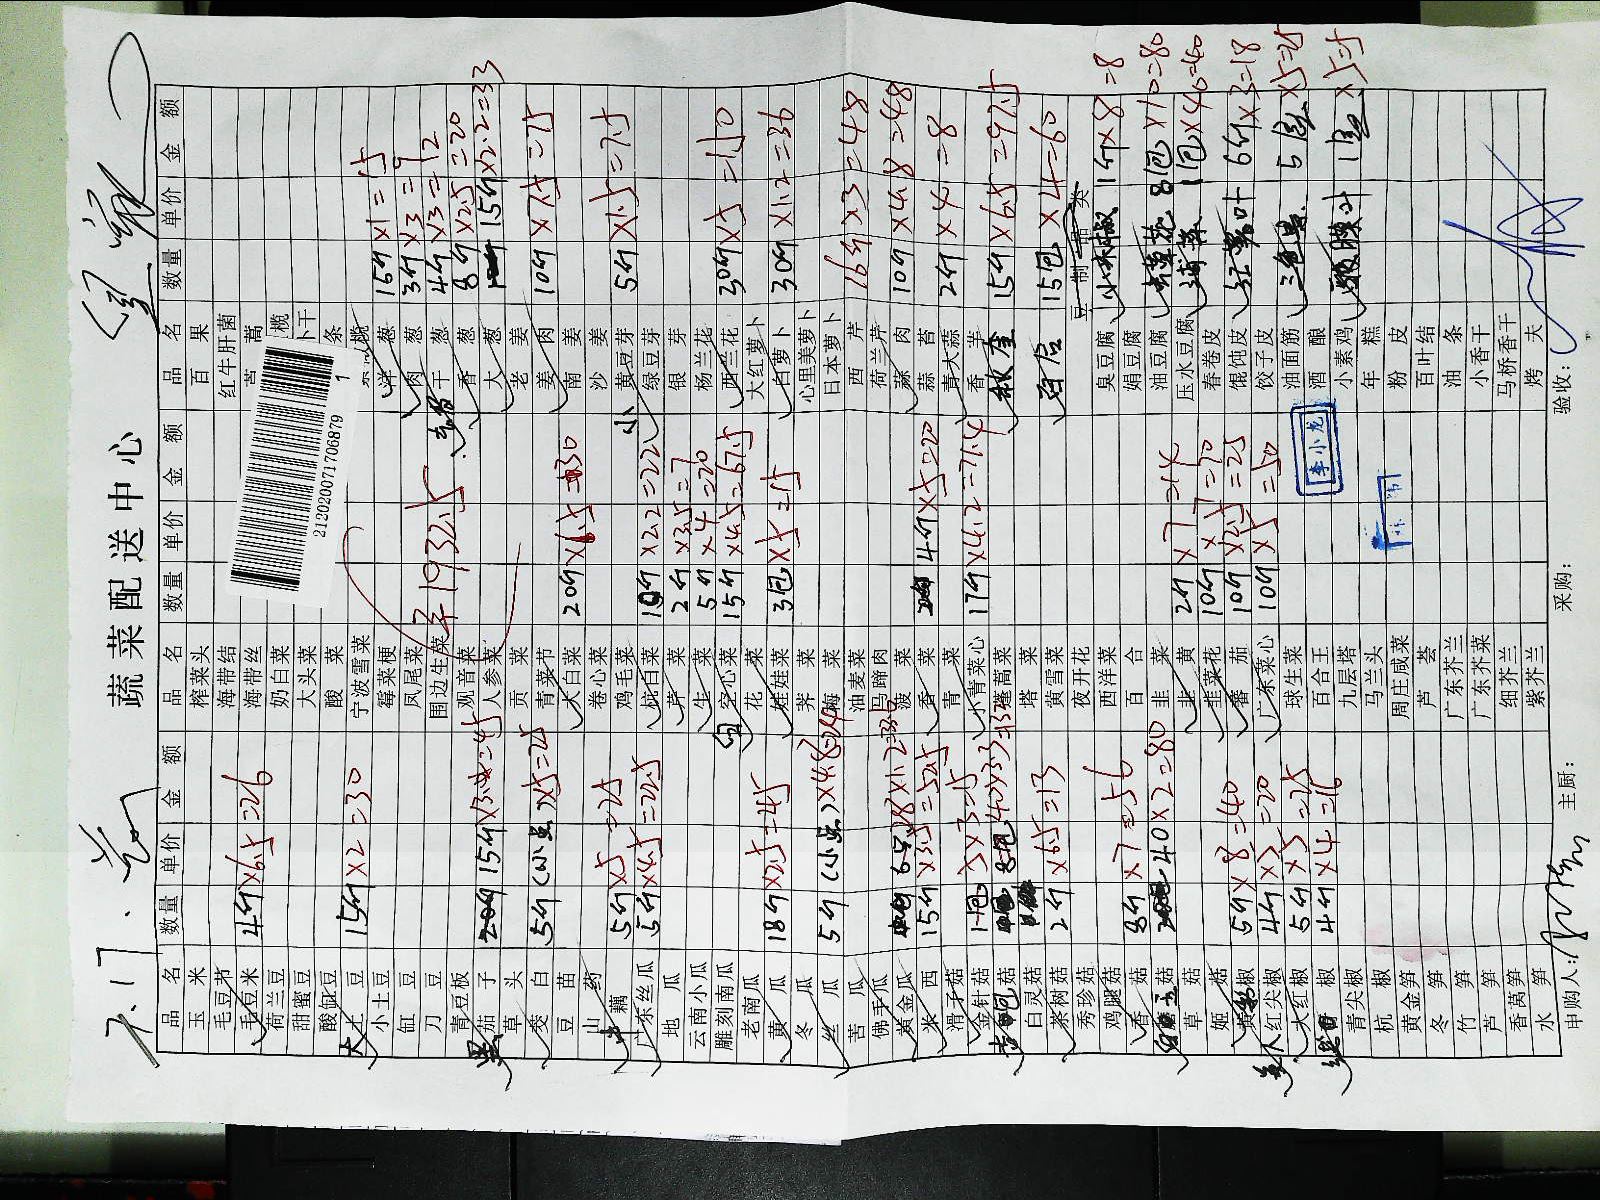 7.17.
蔬菜配送中心
品名 数量 单价 金额 品名 数量 单价 金额 品名 数量 单价 金额
玉米 榨菜头 百果
毛豆节 海带结 红牛肝菌
毛豆米 4斤×6.5=26 海带丝
荷兰豆 奶白菜
甜蜜豆 大头菜
酸缸豆 酸菜
大土豆 15斤×2=30 宁波雪菜
小土豆 霉菜梗 洋葱 15斤×1=15
缸豆 凤尾菜 肉葱 3斤×3=9
刀豆 围边生菜 干葱 4斤×3=12
青豆板 观音菜 香葱 8斤×2.5=20
茄子 15斤×3=45 人参菜 大葱 15斤×2.2=33
草头 贡菜 老姜
茭白 5斤(小点)×5=25 青菜节 姜肉 10斤×7.5=75
豆苗 大白菜 20斤×6.5=130 南姜
山药 卷心菜 沙姜
藕 5斤×5=25 鸡毛菜 小黄豆芽 5斤×1.5=7.5
广东丝瓜 5斤×4.5=22.5 杭白菜 10斤×2.2=22 绿豆芽
地瓜 芹菜 2斤×3.5=7 银芽
云南小瓜 生菜 5斤×4=20 杨兰花
雕刻南瓜 空心菜 15斤×4.5=67.5 西兰花 30斤×5=150
老南瓜 花菜 大红萝卜
黄瓜 18斤×2.5=45 娃娃菜 3包×5=15 白萝卜 30斤×1.2=36
冬瓜 荠菜 心里美萝卜
丝瓜 5斤(小点)×4.8=24 梅菜 日本萝卜
苦瓜 油麦菜 西芹 16斤×3=48
佛手瓜 马蹄肉 荷兰芹
黄金瓜 28×1.2=33.6 菠菜 蒜肉 10斤×4.8=48
米西 15斤×3.5=52.5 香菜 4斤×5=20 蒜苔
滑子菇 青菜 青大蒜 2斤×4=8
金针菇 5×3=15 小青菜心 17斤×4.2=71.4 香芋
蓬蒿菜 秋葵 15斤×6.5=97.5
白灵菇 塔菜
茶树菇 2斤×6.5=13 黄雪菜 15包×4=60
秀珍菇 夜开花 豆制品类
鸡腿菇 西洋菜 臭豆腐 小米椒 1斤×8=8
香菇 8斤×7=56 百合 娟豆腐
40×2=80 韭菜 油豆腐 8包×10=80
草菇 韭黄 2斤×7=14 压水豆腐 1包×40=40
姬菇 韭菜花 10斤×7=70 春卷皮
黄彩椒 5斤×8=40 番茄 10斤×2.5=25 馄饨皮 6斤×3=18
红尖椒 4斤×5=20 广东菜心 10斤×5=50 饺子皮
大红椒 5斤×5=25 球生菜 油面筋 5盒×5=25
椒 4斤×4=16 百合王 酒酿
青尖椒 九层塔 小素鸡 1盒×5=5
杭椒 马兰头 年糕
黄金笋 周庄咸菜 粉皮
冬笋 芦荟 百叶结
竹笋 广东芥兰 油条
芦笋 广东芥菜 小香干
香莴笋 细芥兰 马桥香干
水笋 紫芥兰 烤夫
申购人: 主厨: 采购: 验收:
212020071706879
1
1932.5
李小龙